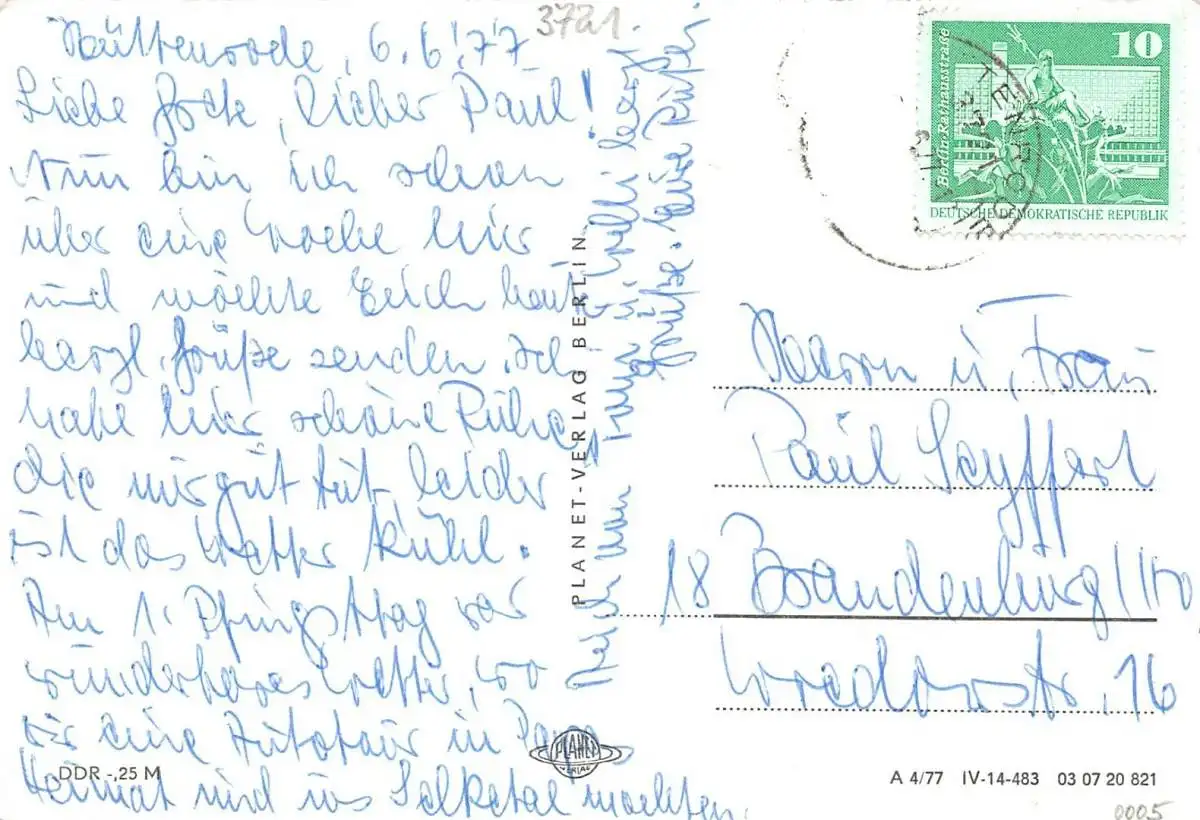 Hüttenrode, 6.6.77
3721
Liebe Grete, lieber Paul!
Nun bin ich schon
über eine Woche hier
und möchte Euch heute
herzl. Grüße senden. Ich
habe hier schöne Ruhe,
die mir gut tut, leider
ist das Wetter kühl.
Am 1. Pfingsttag war
wunderbares Wetter, wo
wir eine Autotour in
Heimat und ins Selketal machten.
Grüße. Eure
PLANET-VERLAG BERLIN
PLANET
VERLAG
DDR -,25 M
10
Berlin-Rathausstraße
DEUTSCHE DEMOKRATISCHE REPUBLIK
Herrn u. Frau
Paul Seyffert
18 Brandenburg/
Wredowstr. 16
A 4/77 IV-14-483 03 07 20 821
0005